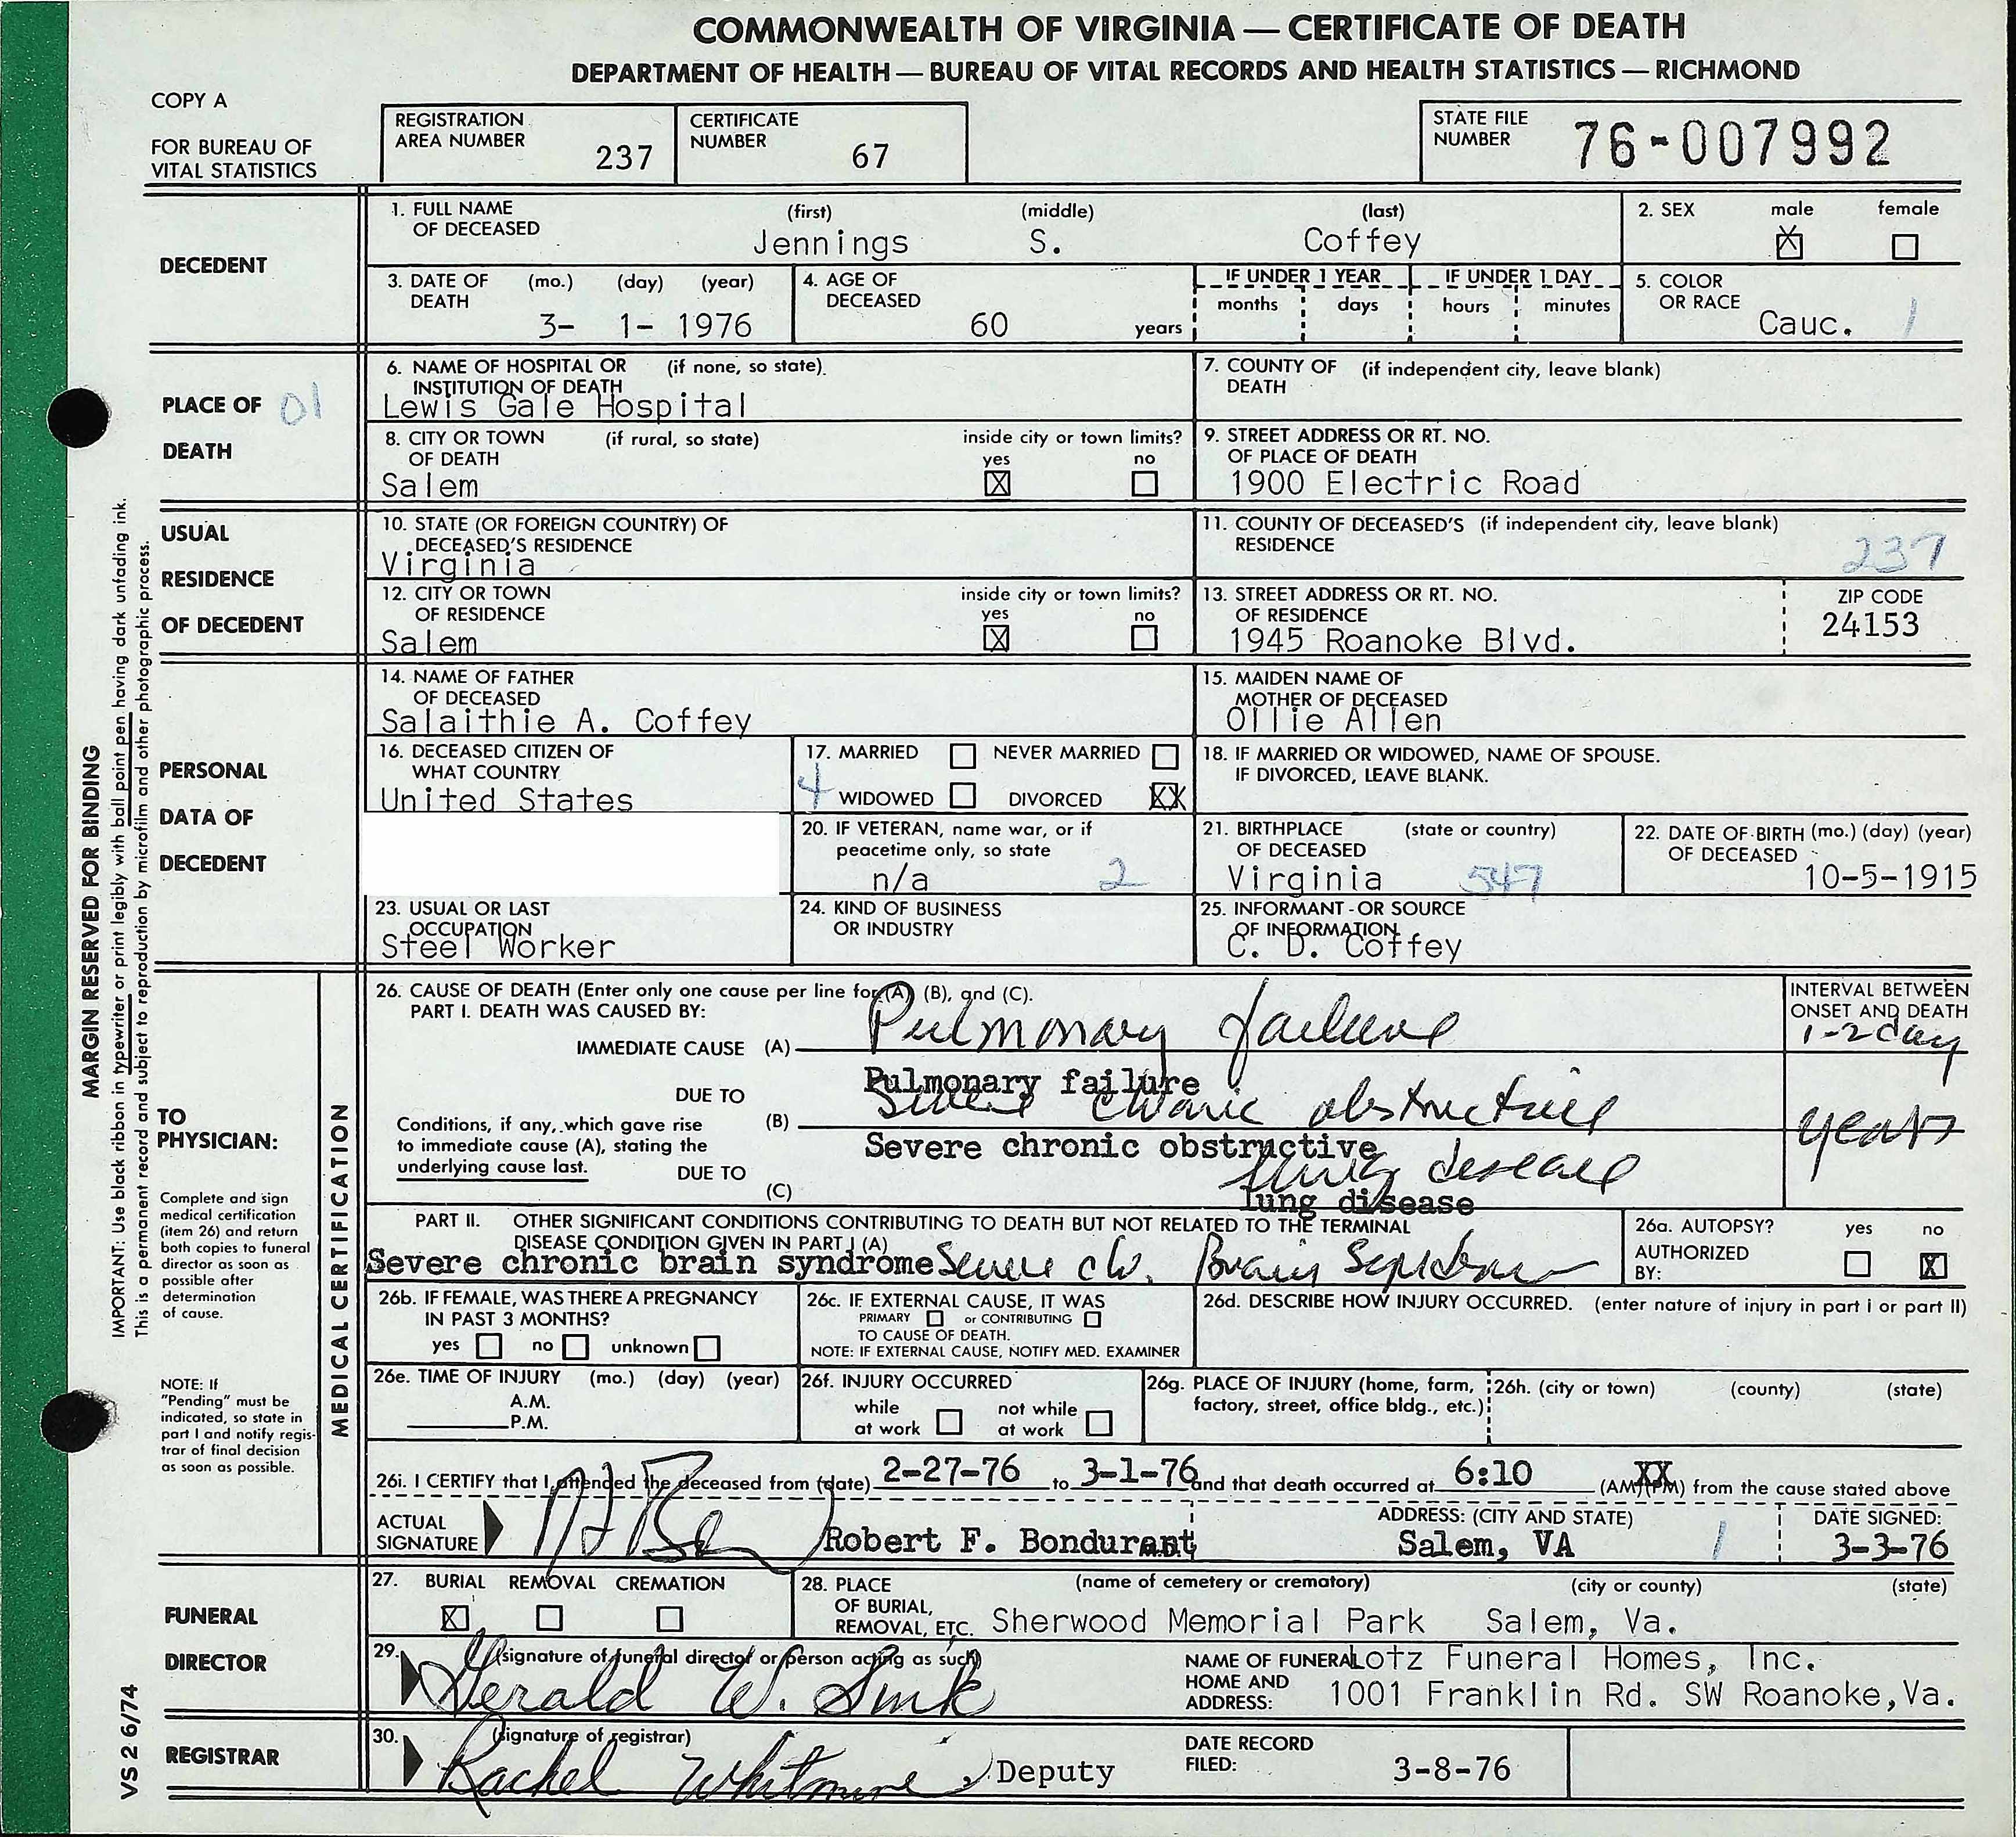 COMMONWEALTH OF VIRGINIA — CERTIFICATE OF DEATH
DEPARTMENT OF HEALTH — BUREAU OF VITAL RECORDS AND HEALTH STATISTICS — RICHMOND
COPY A
FOR BUREAU OF
VITAL STATISTICS
REGISTRATION
AREA NUMBER 237
CERTIFICATE
NUMBER 67
STATE FILE
NUMBER 76-007992
DECEDENT
1. FULL NAME (first) (middle) (last)
OF DECEASED Jennings S. Coffey
2. SEX male female
X
3. DATE OF (mo.) (day) (year)
DEATH 3- 1- 1976
4. AGE OF
DECEASED 60 years
IF UNDER 1 YEAR IF UNDER 1 DAY
months days hours minutes
5. COLOR
OR RACE Cauc. 1
PLACE OF 01
DEATH
6. NAME OF HOSPITAL OR (if none, so state)
INSTITUTION OF DEATH
Lewis Gale Hospital
7. COUNTY OF (if independent city, leave blank)
DEATH
8. CITY OR TOWN (if rural, so state) inside city or town limits?
OF DEATH yes no
Salem X
9. STREET ADDRESS OR RT. NO.
OF PLACE OF DEATH
1900 Electric Road
USUAL
RESIDENCE
OF DECEDENT
10. STATE (OR FOREIGN COUNTRY) OF
DECEASED'S RESIDENCE
Virginia
11. COUNTY OF DECEASED'S (if independent city, leave blank)
RESIDENCE 237
12. CITY OR TOWN inside city or town limits?
OF RESIDENCE yes no
Salem X
13. STREET ADDRESS OR RT. NO.
OF RESIDENCE
1945 Roanoke Blvd.
ZIP CODE
24153
PERSONAL
DATA OF
DECEDENT
14. NAME OF FATHER
OF DECEASED
Salaithie A. Coffey
15. MAIDEN NAME OF
MOTHER OF DECEASED
Ollie Allen
16. DECEASED CITIZEN OF
WHAT COUNTRY
United States
17. MARRIED NEVER MARRIED
4 WIDOWED DIVORCED XX
18. IF MARRIED OR WIDOWED, NAME OF SPOUSE.
IF DIVORCED, LEAVE BLANK.
20. IF VETERAN, name war, or if
peacetime only, so state
n/a 2
21. BIRTHPLACE (state or country)
OF DECEASED
Virginia 547
22. DATE OF BIRTH (mo.) (day) (year)
OF DECEASED
10-5-1915
23. USUAL OR LAST
OCCUPATION
Steel Worker
24. KIND OF BUSINESS
OR INDUSTRY
25. INFORMANT - OR SOURCE
OF INFORMATION
C. D. Coffey
TO
PHYSICIAN:
Complete and sign
medical certification
(item 26) and return
both copies to funeral
director as soon as
possible after
determination
of cause.
NOTE: If
"Pending" must be
indicated, so state in
part I and notify regis-
trar of final decision
as soon as possible.
MEDICAL CERTIFICATION
26. CAUSE OF DEATH (Enter only one cause per line for (A) (B), and (C).
PART I. DEATH WAS CAUSED BY:
IMMEDIATE CAUSE (A) Pulmonary failure
INTERVAL BETWEEN
ONSET AND DEATH
1-2 day
Pulmonary failure
DUE TO
(B) Severe chronic obstructive
years
Conditions, if any, which gave rise
to immediate cause (A), stating the
underlying cause last.
Severe chronic obstructive
DUE TO
(C) lung disease
lung disease
PART II. OTHER SIGNIFICANT CONDITIONS CONTRIBUTING TO DEATH BUT NOT RELATED TO THE TERMINAL
DISEASE CONDITION GIVEN IN PART I (A)
Severe chronic brain syndrome Severe chr. Brain Syndrome
26a. AUTOPSY? yes no
AUTHORIZED
BY: X
26b. IF FEMALE, WAS THERE A PREGNANCY
IN PAST 3 MONTHS?
yes no unknown
26c. IF EXTERNAL CAUSE, IT WAS
PRIMARY or CONTRIBUTING
TO CAUSE OF DEATH.
NOTE: IF EXTERNAL CAUSE, NOTIFY MED. EXAMINER
26d. DESCRIBE HOW INJURY OCCURRED. (enter nature of injury in part I or part II)
26e. TIME OF INJURY (mo.) (day) (year)
A.M.
P.M.
26f. INJURY OCCURRED
while not while
at work at work
26g. PLACE OF INJURY (home, farm,
factory, street, office bldg., etc.)
26h. (city or town) (county) (state)
26i. I CERTIFY that I attended the deceased from (date) 2-27-76 to 3-1-76 and that death occurred at 6:10 (AM) XX (PM) from the cause stated above
ACTUAL
SIGNATURE
Robert F. Bondurant M.D.
ADDRESS: (CITY AND STATE)
Salem, VA 1
DATE SIGNED:
3-3-76
FUNERAL
DIRECTOR
27. BURIAL REMOVAL CREMATION
X
28. PLACE (name of cemetery or crematory) (city or county) (state)
OF BURIAL,
REMOVAL, ETC. Sherwood Memorial Park Salem, Va.
29. (signature of funeral director or person acting as such)
Gerald W. Sink
NAME OF FUNERAL Lotz Funeral Homes, Inc.
HOME AND
ADDRESS: 1001 Franklin Rd. SW Roanoke, Va.
REGISTRAR
30. (signature of registrar)
Rachel Whitmire, Deputy
DATE RECORD
FILED: 3-8-76
MARGIN RESERVED FOR BINDING
IMPORTANT: Use black ribbon in typewriter or print legibly with ball point pen having dark unfading ink.
This is a permanent record and subject to reproduction by microfilm and other photographic process.
VS 2 6/74